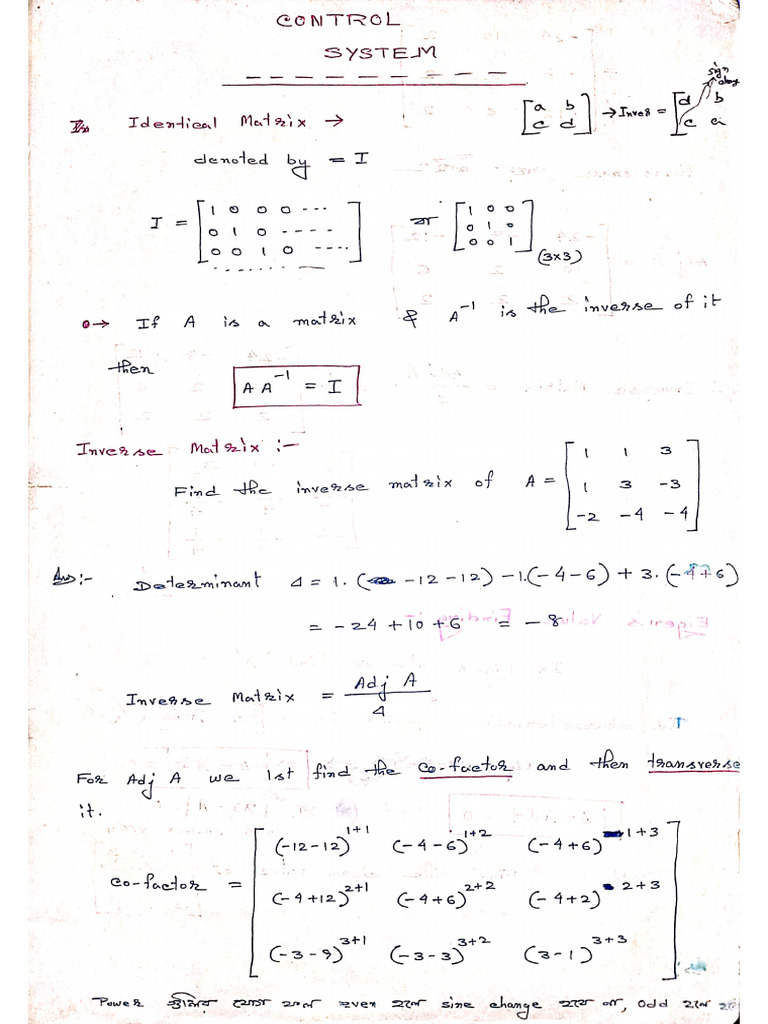 CONTROL
SYSTEM
Identical Matrix →
[a b
c d] → Inver = [d b
c a]
sign
denoted by = I
I = [1 0 0 0 ---
0 1 0 -----
0 0 1 0 ----
........] বা [1 0 0
0 1 0
0 0 1] (3×3)
→ If A is a matrix & A⁻¹ is the inverse of it
then
A A⁻¹ = I
Inverse Matrix :-
Find the inverse matrix of A = [1 1 3
1 3 -3
-2 -4 -4]
Ans:- Determinant Δ = 1.(-12-12) -1.(-4-6) + 3.(-4+6)
= -24 + 10 + 6 = -8
Inverse Matrix = Adj A / Δ
For Adj A we 1st find the co-factor and then transverse
it.
co-factor = [(-12-12)¹⁺¹ (-4-6)¹⁺² (-4+6)¹⁺³
(-4+12)²⁺¹ (-4+6)²⁺² (-4+2)²⁺³
(-3-9)³⁺¹ (-3-3)³⁺² (3-1)³⁺³]
Power যোগ ফল even হলে sine change হবে না, odd হলে